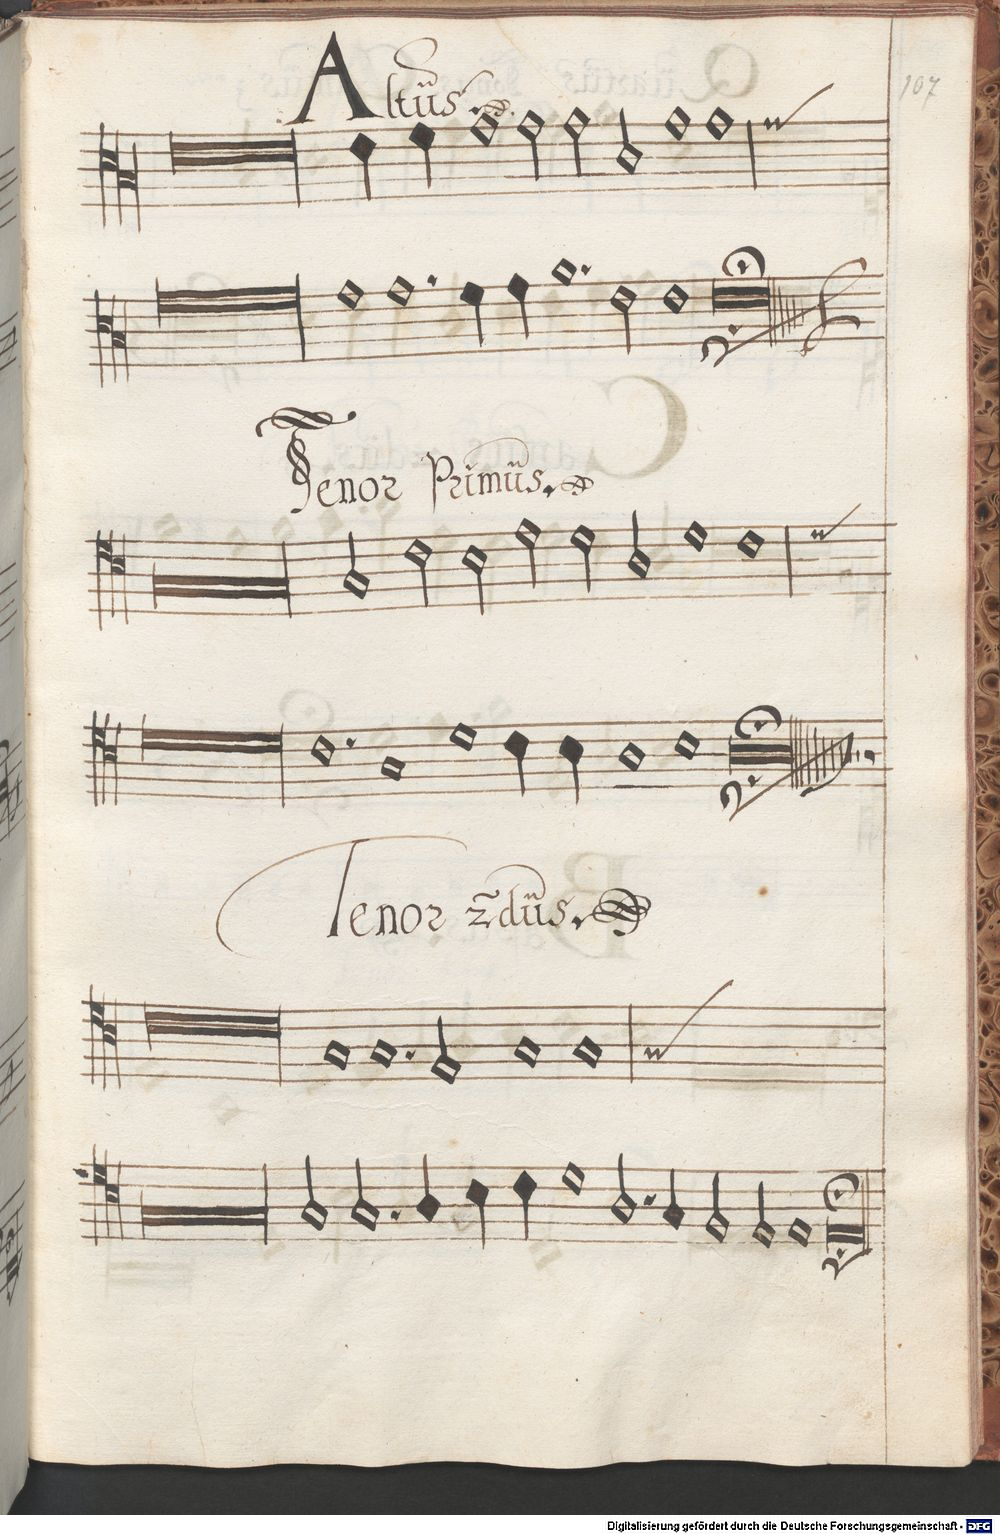 107
Altus.
Tenor Primus.
Tenor 2dus.
Digitalisierung gefördert durch die Deutsche Forschungsgemeinschaft - DFG